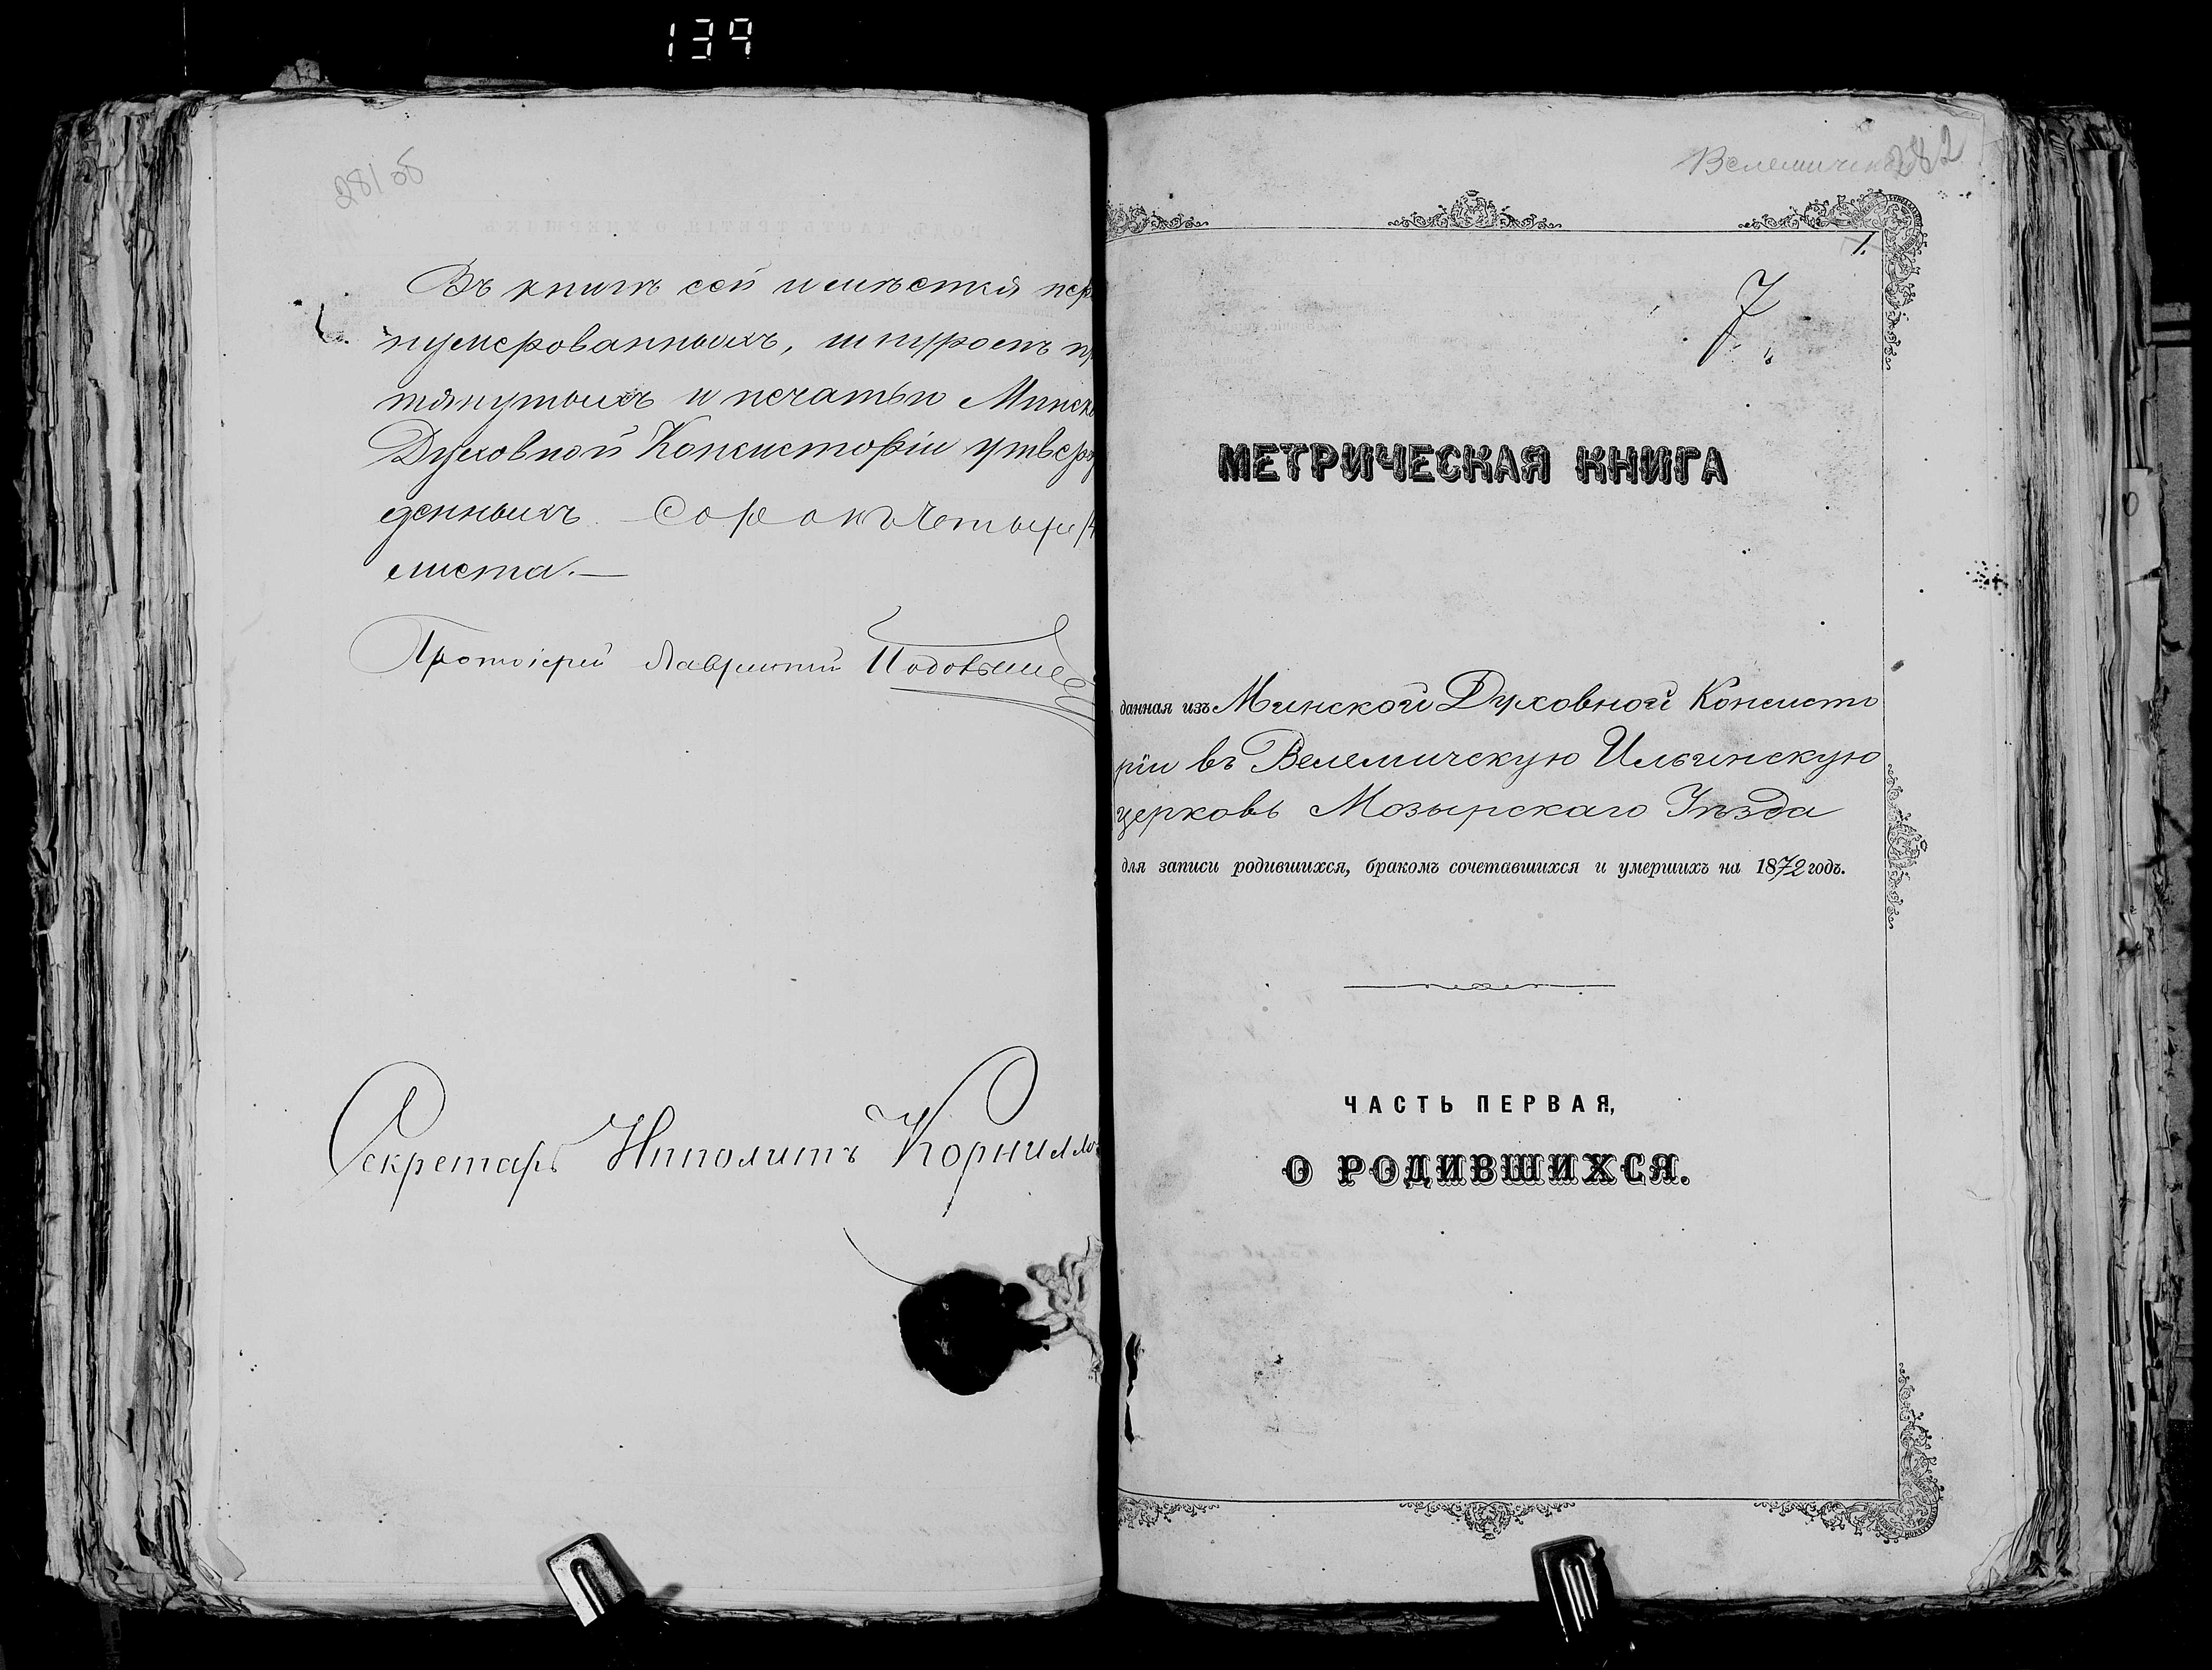 139
281 об
Въ книгѣ сей имѣется пер
нумерованныхъ, шнуромъ пр
тянутыхъ и печатью Минск
Духовной Консисторіи утверж
денныхъ сорокъ четыре
листа.—
Протоіерей Лаврентій
Секретарь Ипполитъ Корнилло
Велемичская 282
1.
7
МЕТРИЧЕСКАЯ КНИГА
данная изъ Минской Духовной Консисто
ріи въ Велемичскую Ильинскую
церковь Мозырскаго Уѣзда
для записи родившихся, бракомъ сочетавшихся и умершихъ на 1872 годъ.
ЧАСТЬ ПЕРВАЯ,
О РОДИВШИХСЯ.